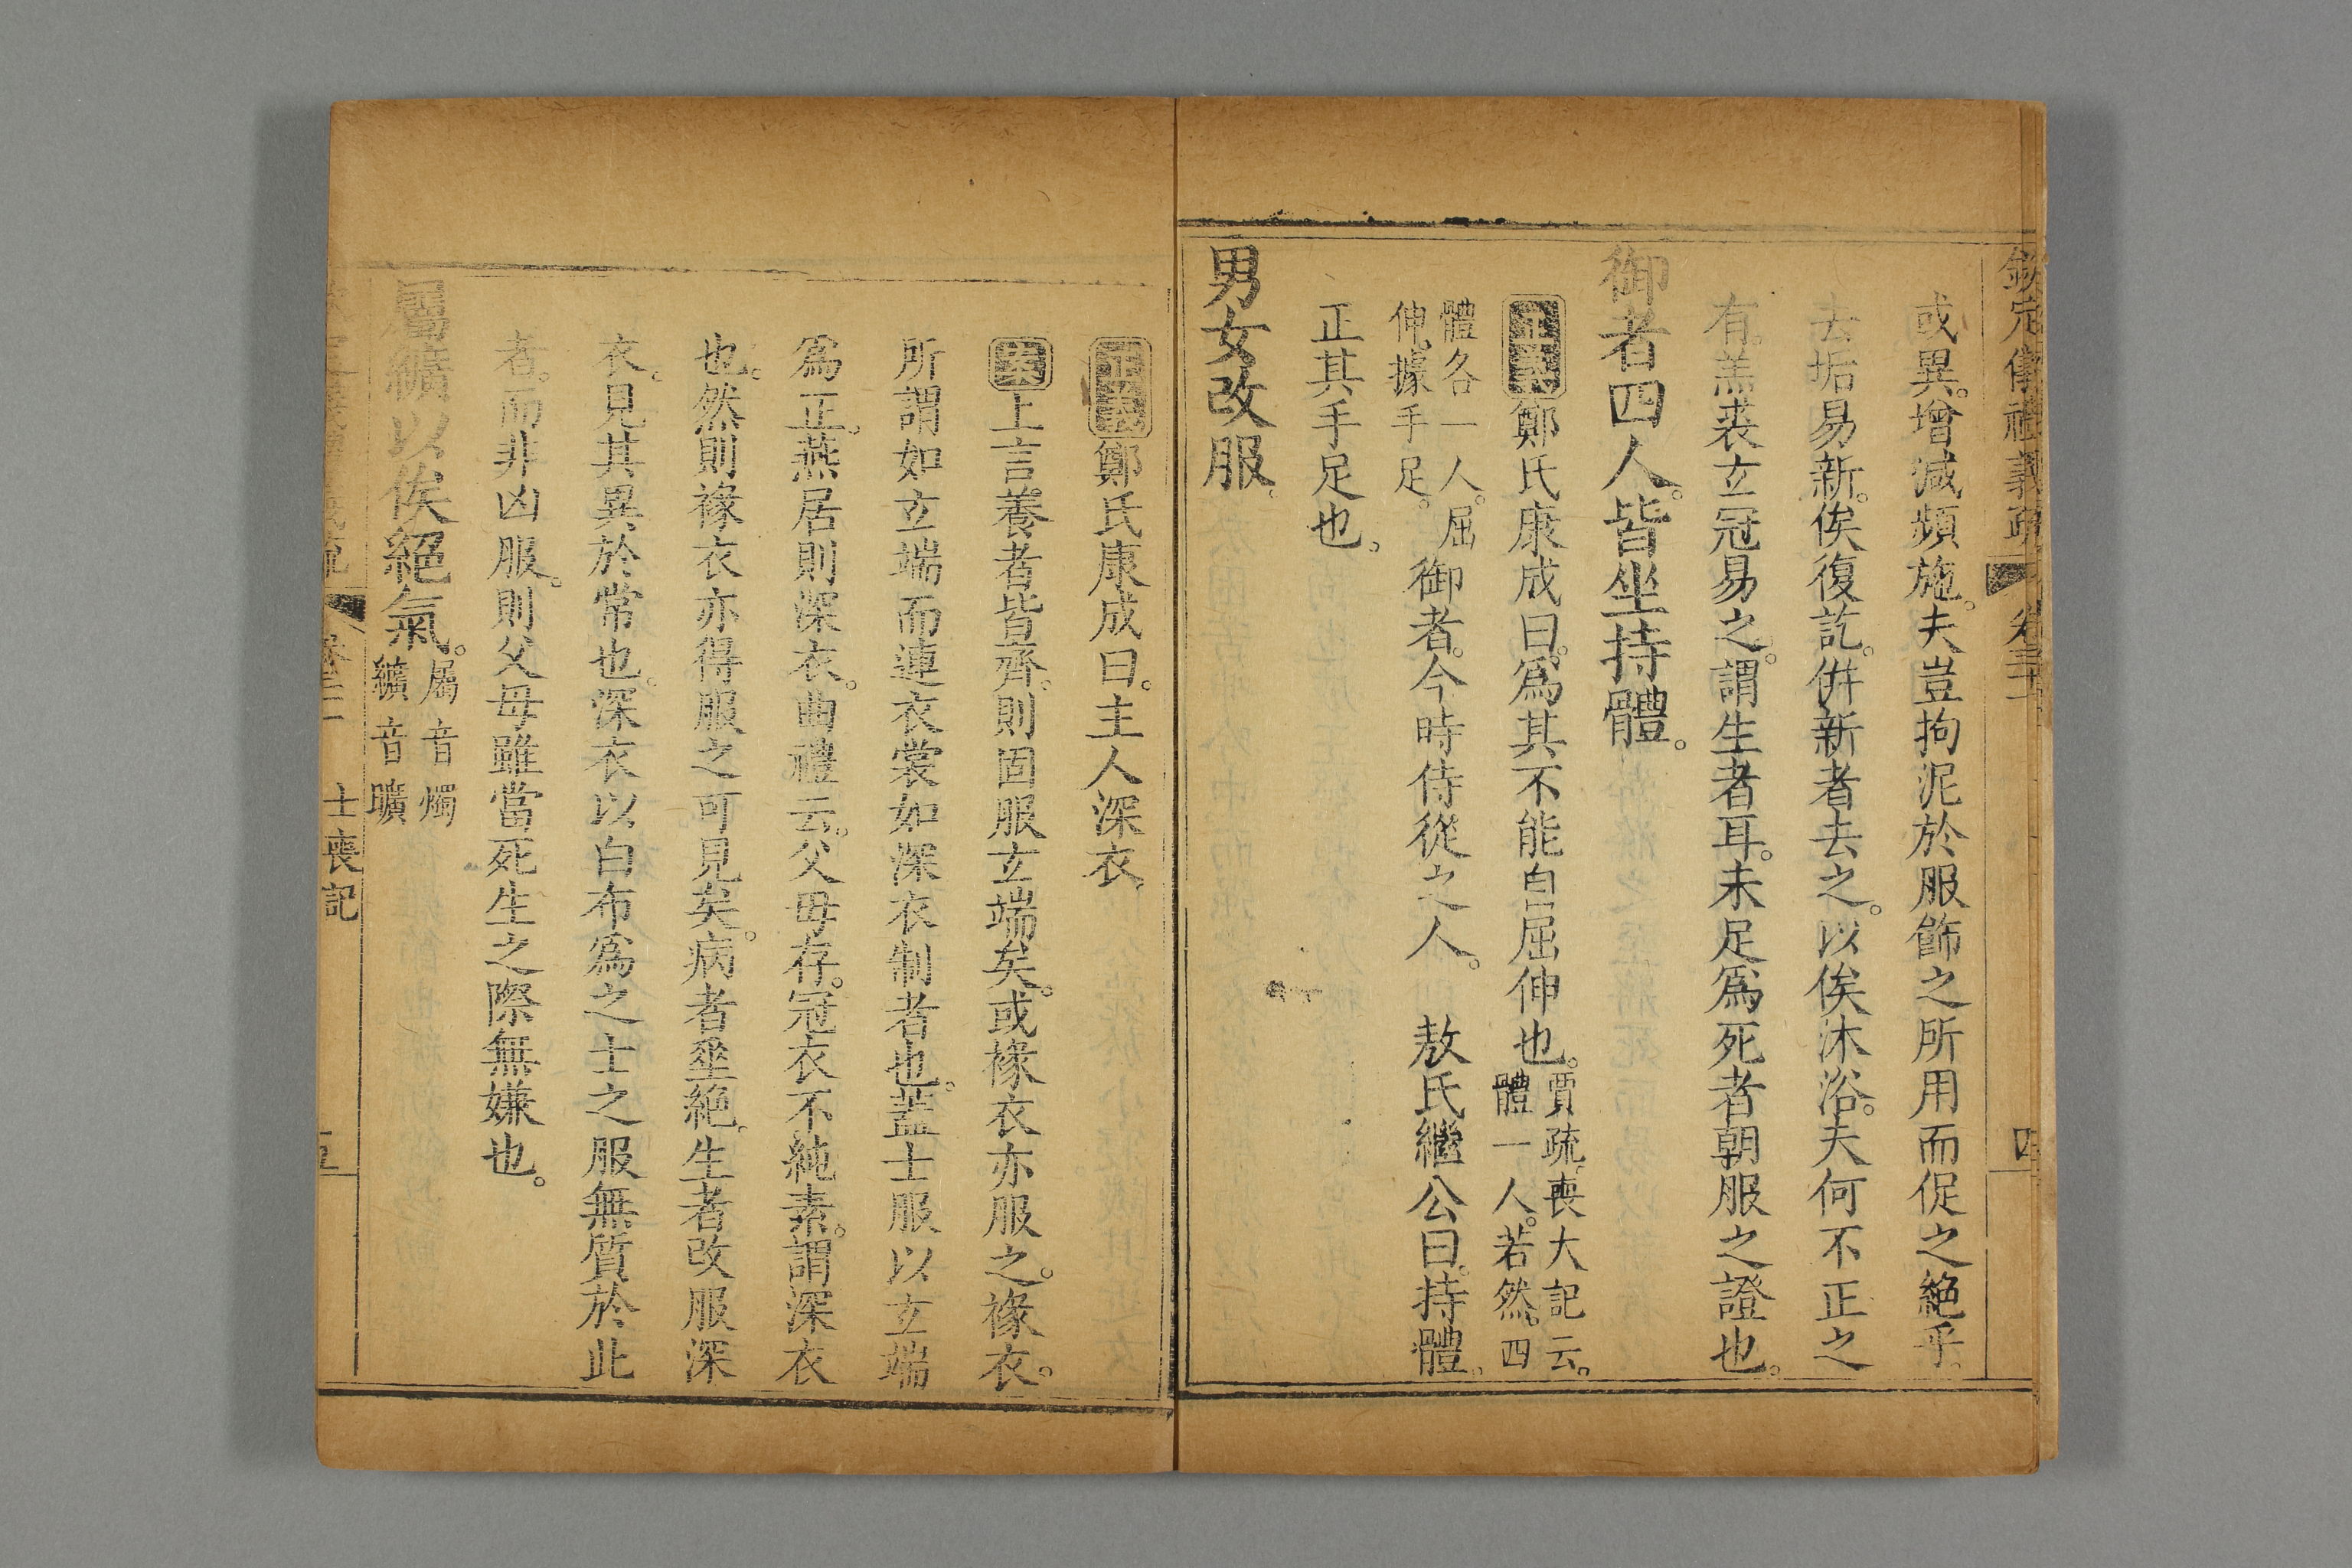 欽定儀禮義疏 卷三十一 四
或異。增減頻施。夫豈拘泥於服飾之所用而促之絕乎。
去垢易新。俟復訖。併新者去之。以俟沐浴。夫何不正之
有。羔裘玄冠易之。謂生者耳。未足爲死者朝服之證也。
御者四人。皆坐持體。
正義鄭氏康成曰。爲其不能自屈伸也。賈疏。喪大記云。體一人。若然。四
體各一人。屈伸。據手足。御者。今時侍從之人。 敖氏繼公曰。持體。
正其手足也。
男女改服。
正義鄭氏康成曰。主人深衣。
案上言養者皆齊。則固服玄端矣。或褖衣亦服之。褖衣。
所謂如玄端而連衣裳如深衣制者也。蓋士服以玄端
爲正。燕居則深衣。曲禮云。父母存。冠衣不純素。謂深衣
也。然則褖衣亦得服之可見矣。病者垂絕。生者改服深
衣。見其異於常也。深衣以白布爲之士之服無質於此
者。而非凶服。則父母雖當死生之際無嫌也。
屬纊以俟絕氣。屬音燭 纊音曠
士喪記 五